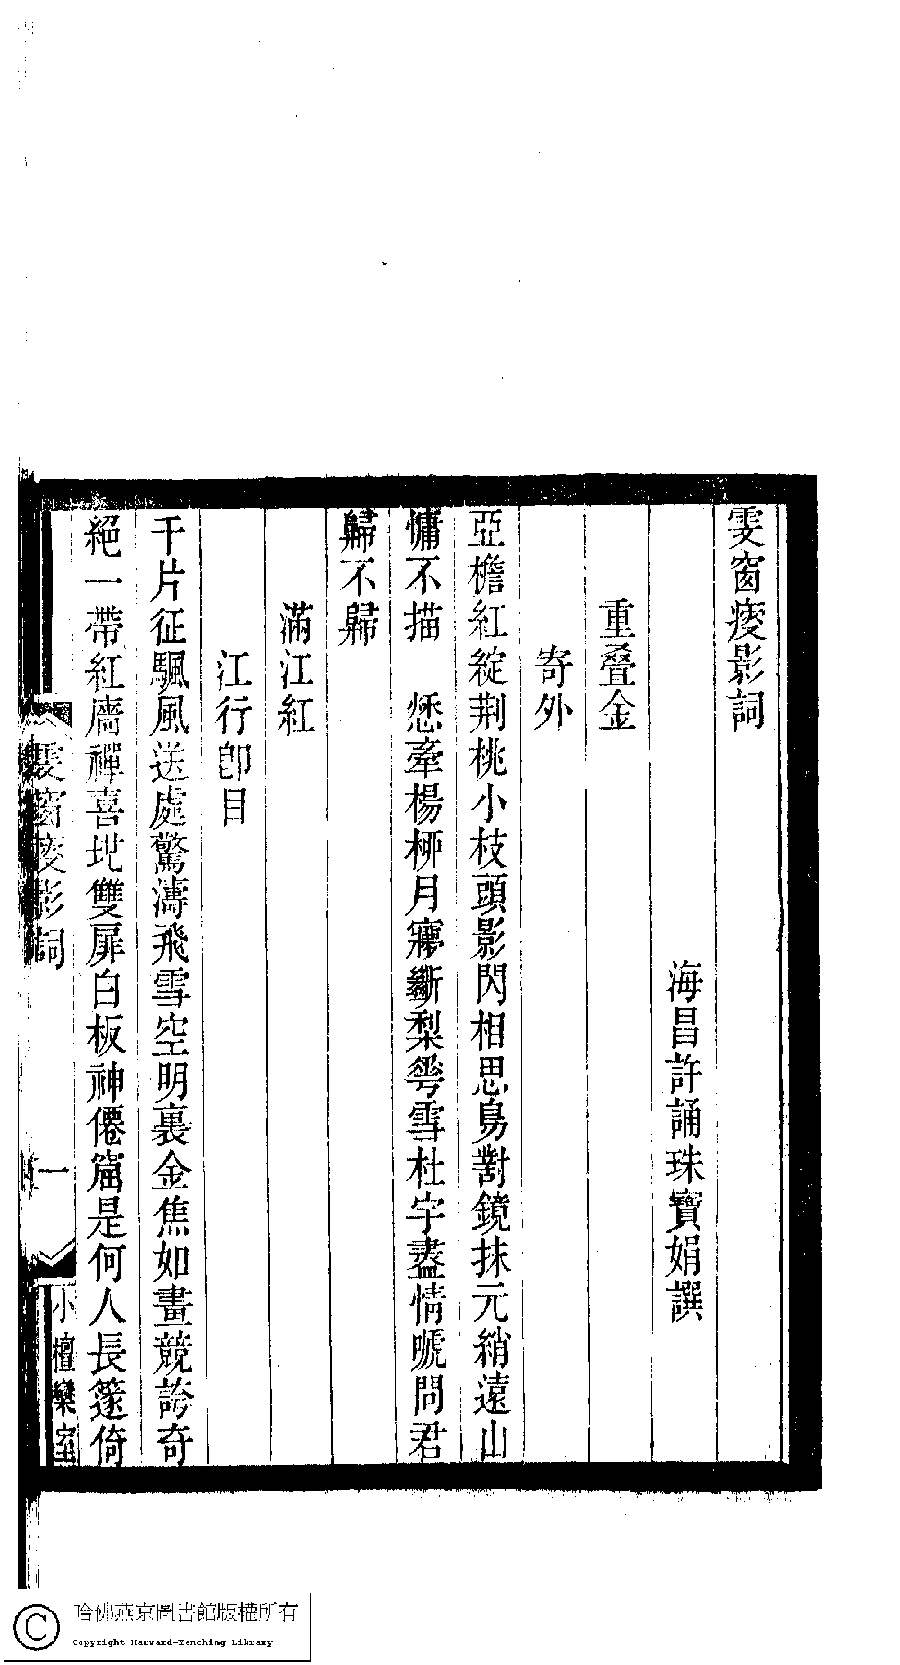 雯窗瘦影詞
海昌許誦珠寶娟譔
重叠金
寄外
亞檐紅綻荆桃小枝頭影閃相思鳥對鏡抹元綃遠山
慵不描　愁牽楊柳月寱斷梨雩雪杜宇盡情號問君
歸不歸
滿江紅
江行卽目
千片征颿風送處驚濤飛雪空明裏金焦如畫競誇奇
絕一帶紅牆禪喜地雙扉白板神僊窟是何人長篴倚
雯窗瘦影詞
一
小檀欒室
哈佛燕京圖書館版權所有
Copyright Harvard-Yenching Library